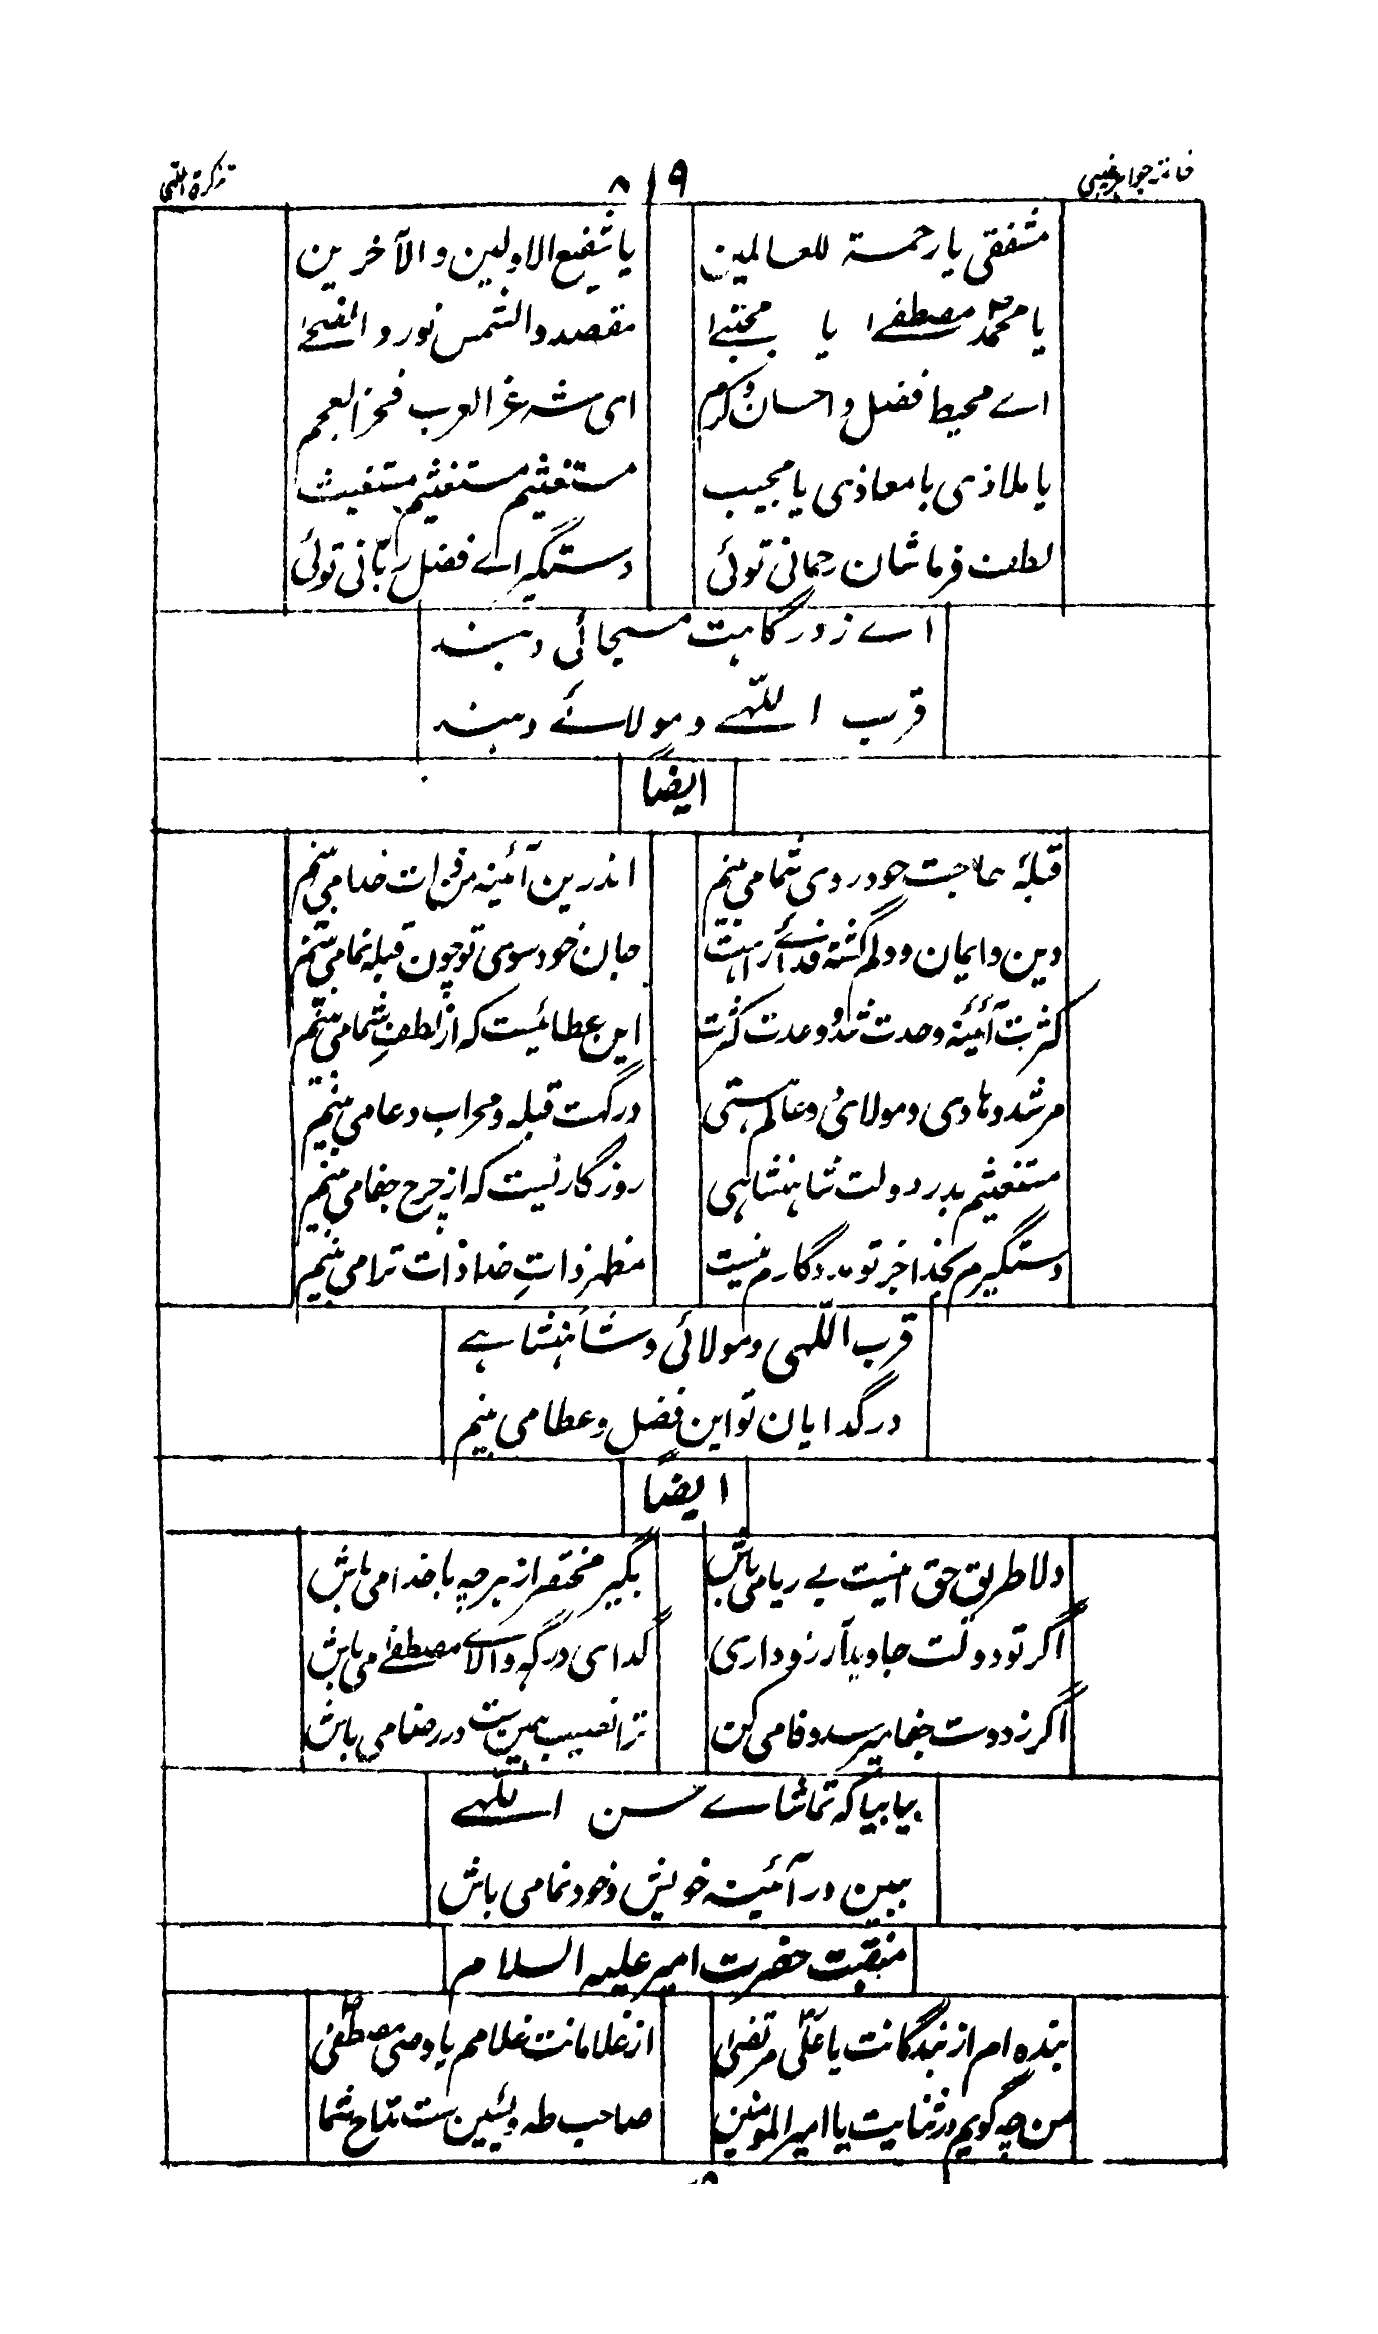 خاتمہ جواہر غیبی ۸۱۹ تذکرۃ المتقی
مشفقی یا رحمۃ للعالمین یا شفیع الاولین و الآخرین
یا محمد مصطفےٰ یا مجتبےٰ مقصد والشمس نور و الضحےٰ
اے محیط فضل و احسان و کرم ای شہ عز العرب فخر العجم
یا ملاذی یا معاذی یا مجیب مستغیثم مستغیثم مستغیث
لطف فرما شان رحمانی توئی دستگیر اے فضل ربّانی توئی
اے ز درگاہت مسیحائی دہند
قرب اللّٰہے و مولائے دہند
ایضاً
قبلۂ حاجت خود روی شما می بینم اندرین آئینہ من ذات خدا می بینم
دین و ایمان و دلم گشتہ فدائے راہت جان خود سوی تو چون قبلہ نما می بینم
کثرت آئینۂ وحدت شد و وحدت کثرت این عطائیست کہ از لطفِ شما می بینم
مرشد و ہادی و مولائی و عالم ہستی درگہت قبلہ و محراب دعا می بینم
مستغیثم بدر دولت شاہنشاہی روزگاریست کہ از چرخ جفا می بینم
دستگیرم بخدا جز تو مددگارم نیست مظہر ذاتِ خدا ذات ترا می بینم
قرب اللّٰہی و مولائی و شاہنشاہے
در گدایان تو این فضل و عطا می بینم
ایضاً
دلا طریق حق اینست بے ریا می باش بگیر مختصر از ہرچہ با خدا می باش
اگر تو دولت جاوید آرزو داری گدای درگہ والاے مصطفےٰ می باش
اگر ز دوست جفا میرسد وفا می کن ترا نصیب ہمین ست در رضا می باش
بیا بیا کہ تماشاے حسن اللّٰہے
ببین در آئینہ خویش و خود نما می باش
منقبت حضرت امیر علیہ السلام
بندہ ام از بندگانت یا علی مرتضیٰ از غلامانت غلامم یا وصی مصطفیٰ
من چہ گویم در ثنایت یا امیر المومنین صاحب طہ و یٰسین ست مداح شما